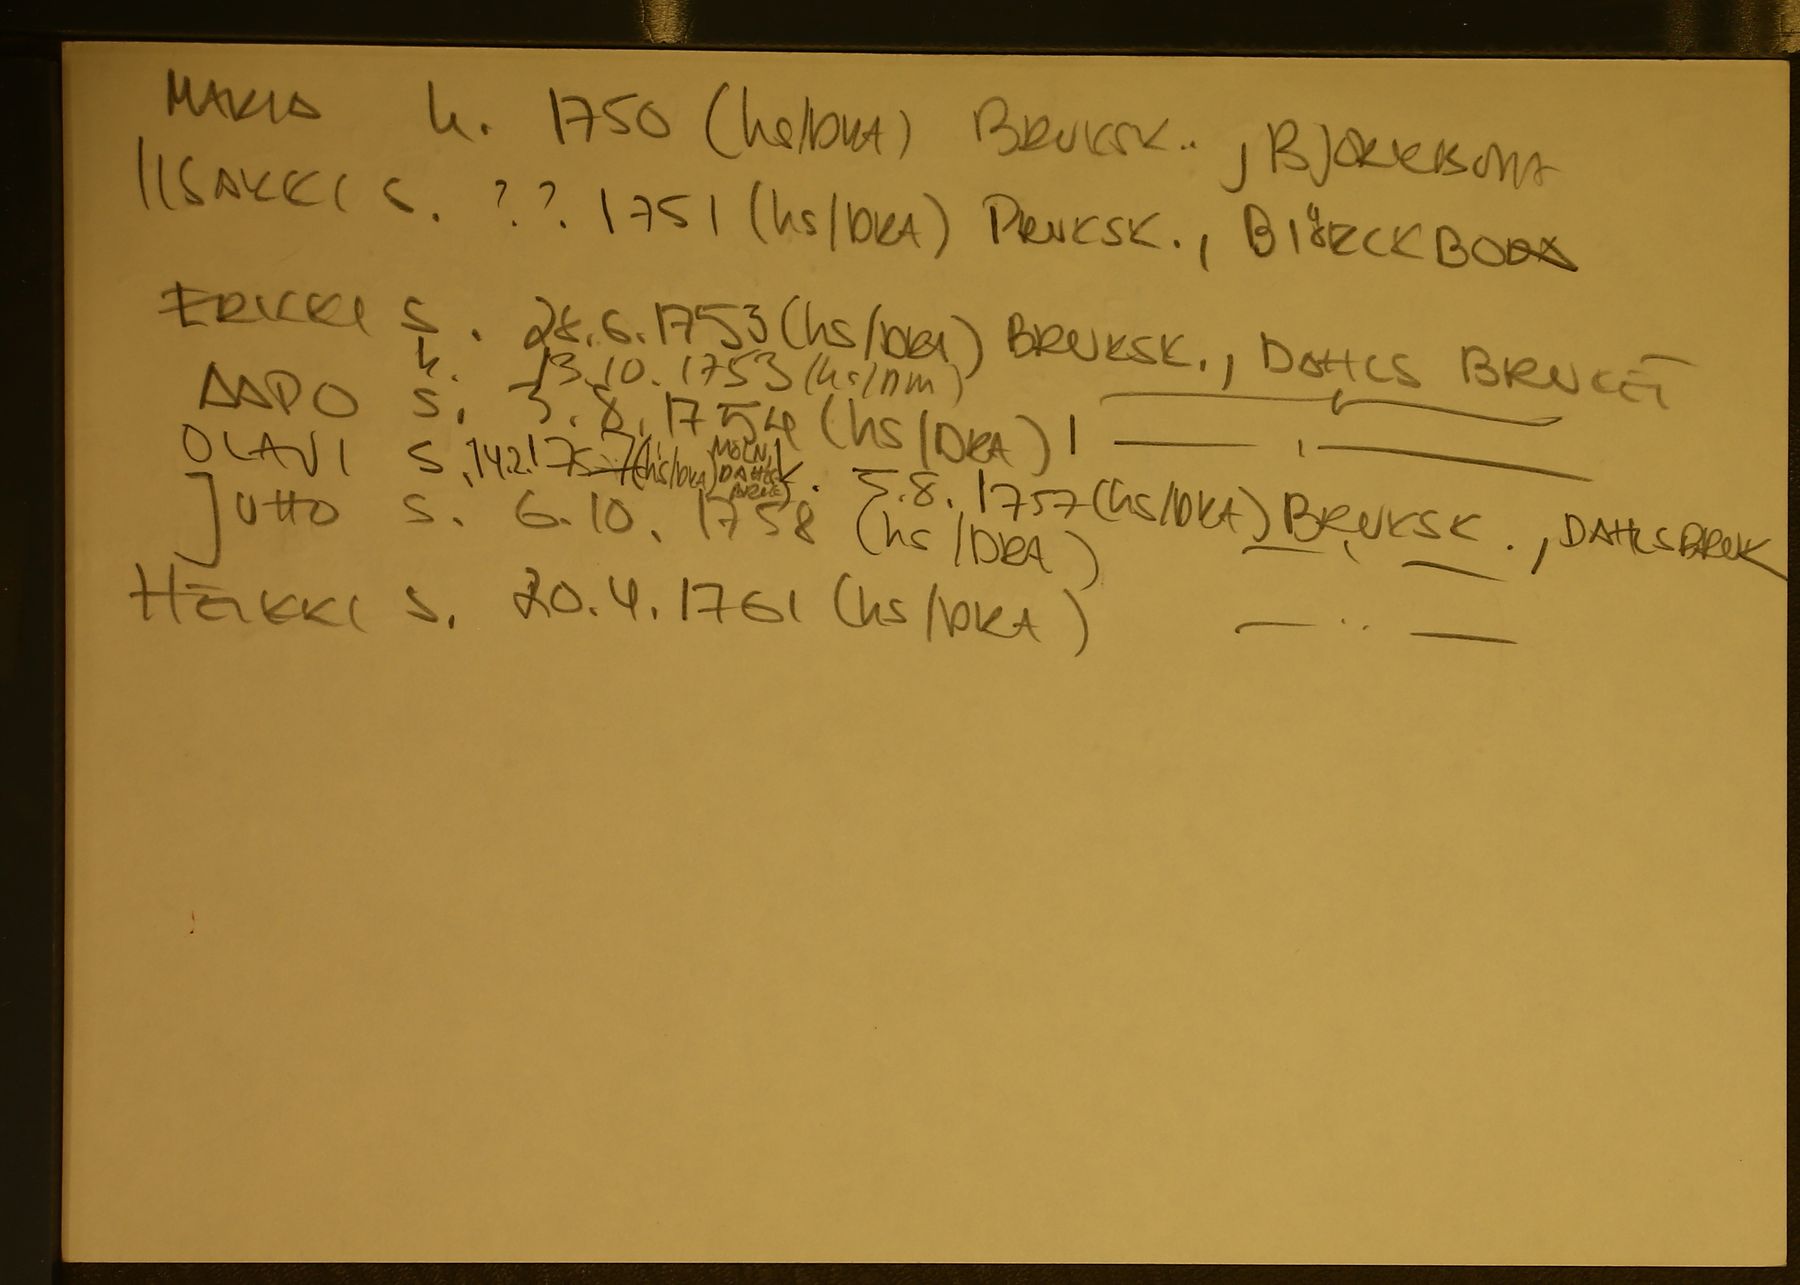 MARIA k. 1750 (hs/DKA) BRUKSK., BJÖRKBODA
IISAKKI S. ?.?. 1751 (hs/DKA) BRUKSK., BIÖRCKBODA
ERKKI S. 28.6.1753 (hs/DKA) BRUKSK., DAHLS BRUKET
k. 13.10.1753 (hs/nm)
AAPO S. 3.8.1754 (hs/DKA) — " —
OLAVI S. 14.2.1757 (hs/DKA) DAHLS k. 5.8.1757 (hs/DKA) BRUKSK., DAHLSBRUK
JUHO S. 6.10.1758 (hs/DKA) — " —
HEIKKI S. 20.4.1761 (hs/DKA) — " —